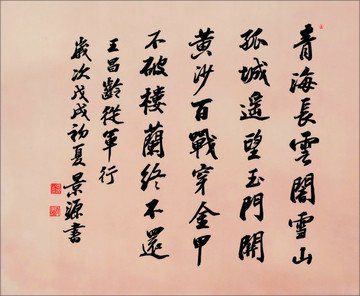 青海長雲闇雪山
孤城遥望玉門關
黄沙百戰穿金甲
不破樓蘭終不還
王昌齡從軍行
歲次戊戌初夏景源書